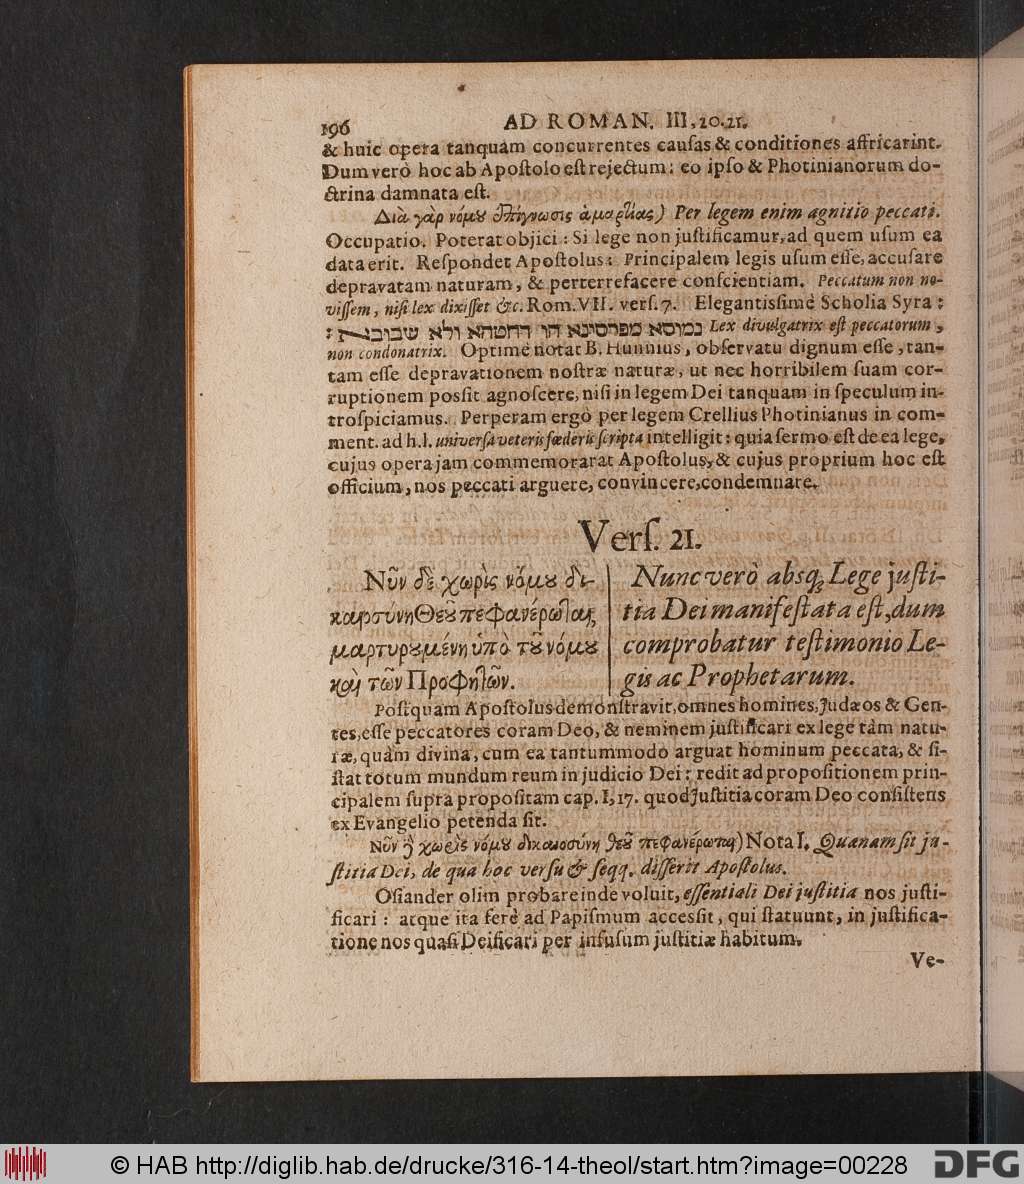 196 AD ROMAN. III, 20. 21.
& huic opera tanquàm concurrentes causas & conditiones affricarint.
Dum verò hoc ab Apostolo est rejectum: eo ipso & Photinianorum do-
ctrina damnata est.
Διὰ γὰρ νόμου ἐπίγνωσις ἁμαρτίας) Per legem enim agnitio peccati.
Occupatio. Poterat objici: Si lege non justificamur, ad quem usum ea
data erit. Respondet Apostolus: Principalem legis usum esse, accusare
depravatam naturam, & perterrefacere conscientiam. Peccatum non no-
vissem, nisi lex dixisset &c. Rom. VII. vers. 7. Elegantissimè Scholia Syra:
נמוסא מפרסינא הו דחטהא ולא שבוקנא: Lex divulgatrix est peccatorum,
non condonatrix. Optimè notat B. Hunnius, observatu dignum esse, tan-
tam esse depravationem nostræ naturæ, ut nec horribilem suam cor-
ruptionem possit agnoscere, nisi in legem Dei tanquam in speculum in-
trospiciamus. Perperam ergò per legem Crellius Photinianus in com-
ment. ad h.l. universa veteris fœderis scripta intelligit: quia sermo est de ea lege,
cujus opera jam commemorarat Apostolus, & cujus proprium hoc est
officium, nos peccati arguere, convincere, condemnare.
Vers. 21.
Νῦν δὲ χωρὶς νόμου δι-
καιοσύνη Θεοῦ πεφανέρωται,
μαρτυρουμένη ὑπὸ τοῦ νόμου
καὶ τῶν Προφητῶν.
Nunc verò absq; Lege justi-
tia Dei manifestata est, dum
comprobatur testimonio Le-
gis ac Prophetarum.
Postquam Apostolus demonstravit, omnes homines, Judæos & Gen-
tes, esse peccatores coram Deo, & neminem justificari ex lege tàm natu-
ræ, quàm divina, cum ea tantummodo arguat hominum peccata, & si-
stat totum mundum reum in judicio Dei: redit ad propositionem prin-
cipalem supra propositam cap. I, 17. quod Justitia coram Deo consistens
ex Evangelio petenda sit.
Νῦν δὲ χωρὶς νόμου δικαιοσύνη θεοῦ πεφανέρωται) Nota I. Quanam sit ju-
stitia Dei, de qua hoc versu & seqq. disserit Apostolus.
Osiander olim probare inde voluit, essentiali Dei justitia nos justi-
ficari: atque ita ferè ad Papismum accessit, qui statuunt, in justifica-
tione nos quasi Deificari per infusum justitiæ habitum.
Ve-
© HAB http://diglib.hab.de/drucke/316-14-theol/start.htm?image=00228
DFG